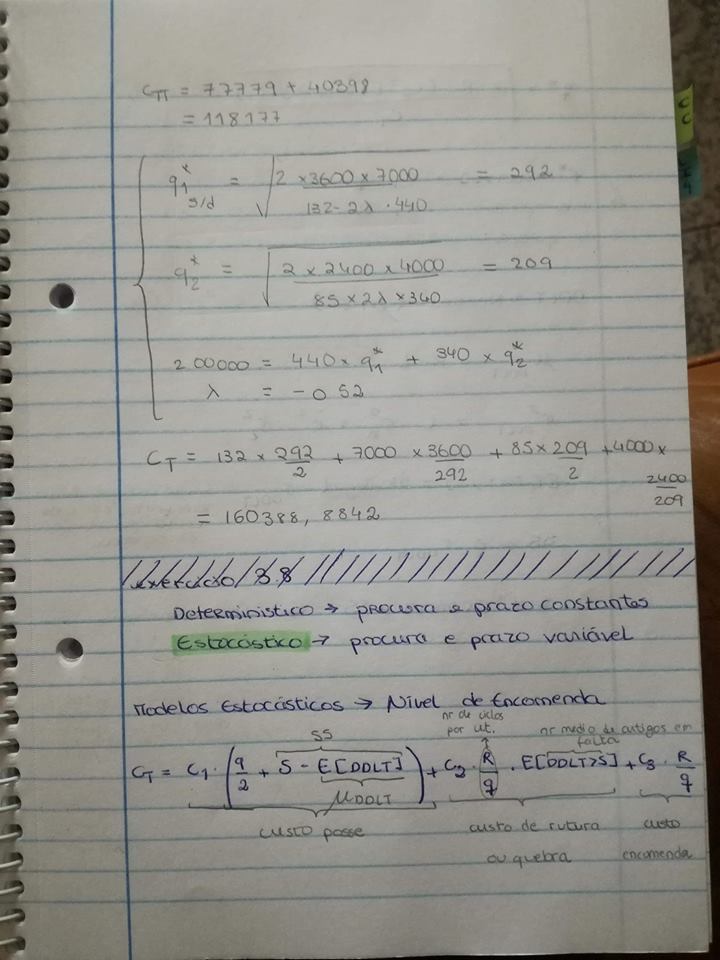 C_T1 = 77779 + 40398
= 118177
q1* s/d = √(2 × 3600 × 7000 / 132 - 2λ · 440) = 292
q2* = √(2 × 2400 × 4000 / 85 × 2λ × 340) = 209
200000 = 440 × q1* + 340 × q2*
λ = -0 52
C_T = 132 × 292/2 + 7000 × 3600/292 + 85 × 209/2 + 4000 × 2400/209
= 160388, 8842
exercício 3.8
Determinístico → procura e prazo constantes
Estocástico → procura e prazo variável
Modelos Estocásticos → Nível de Encomenda
nr de ciclos
por ut.
SS
nr medio de artigos em
falta
C_T = C1 · (q/2 + S - E[DDLT]) + C2 · R/q · E[DDLT>S] + C3 · R/q
μ_DDLT
custo posse
custo de rutura
ou quebra
custo
encomenda